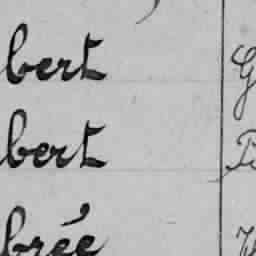 bert G
bert
brée